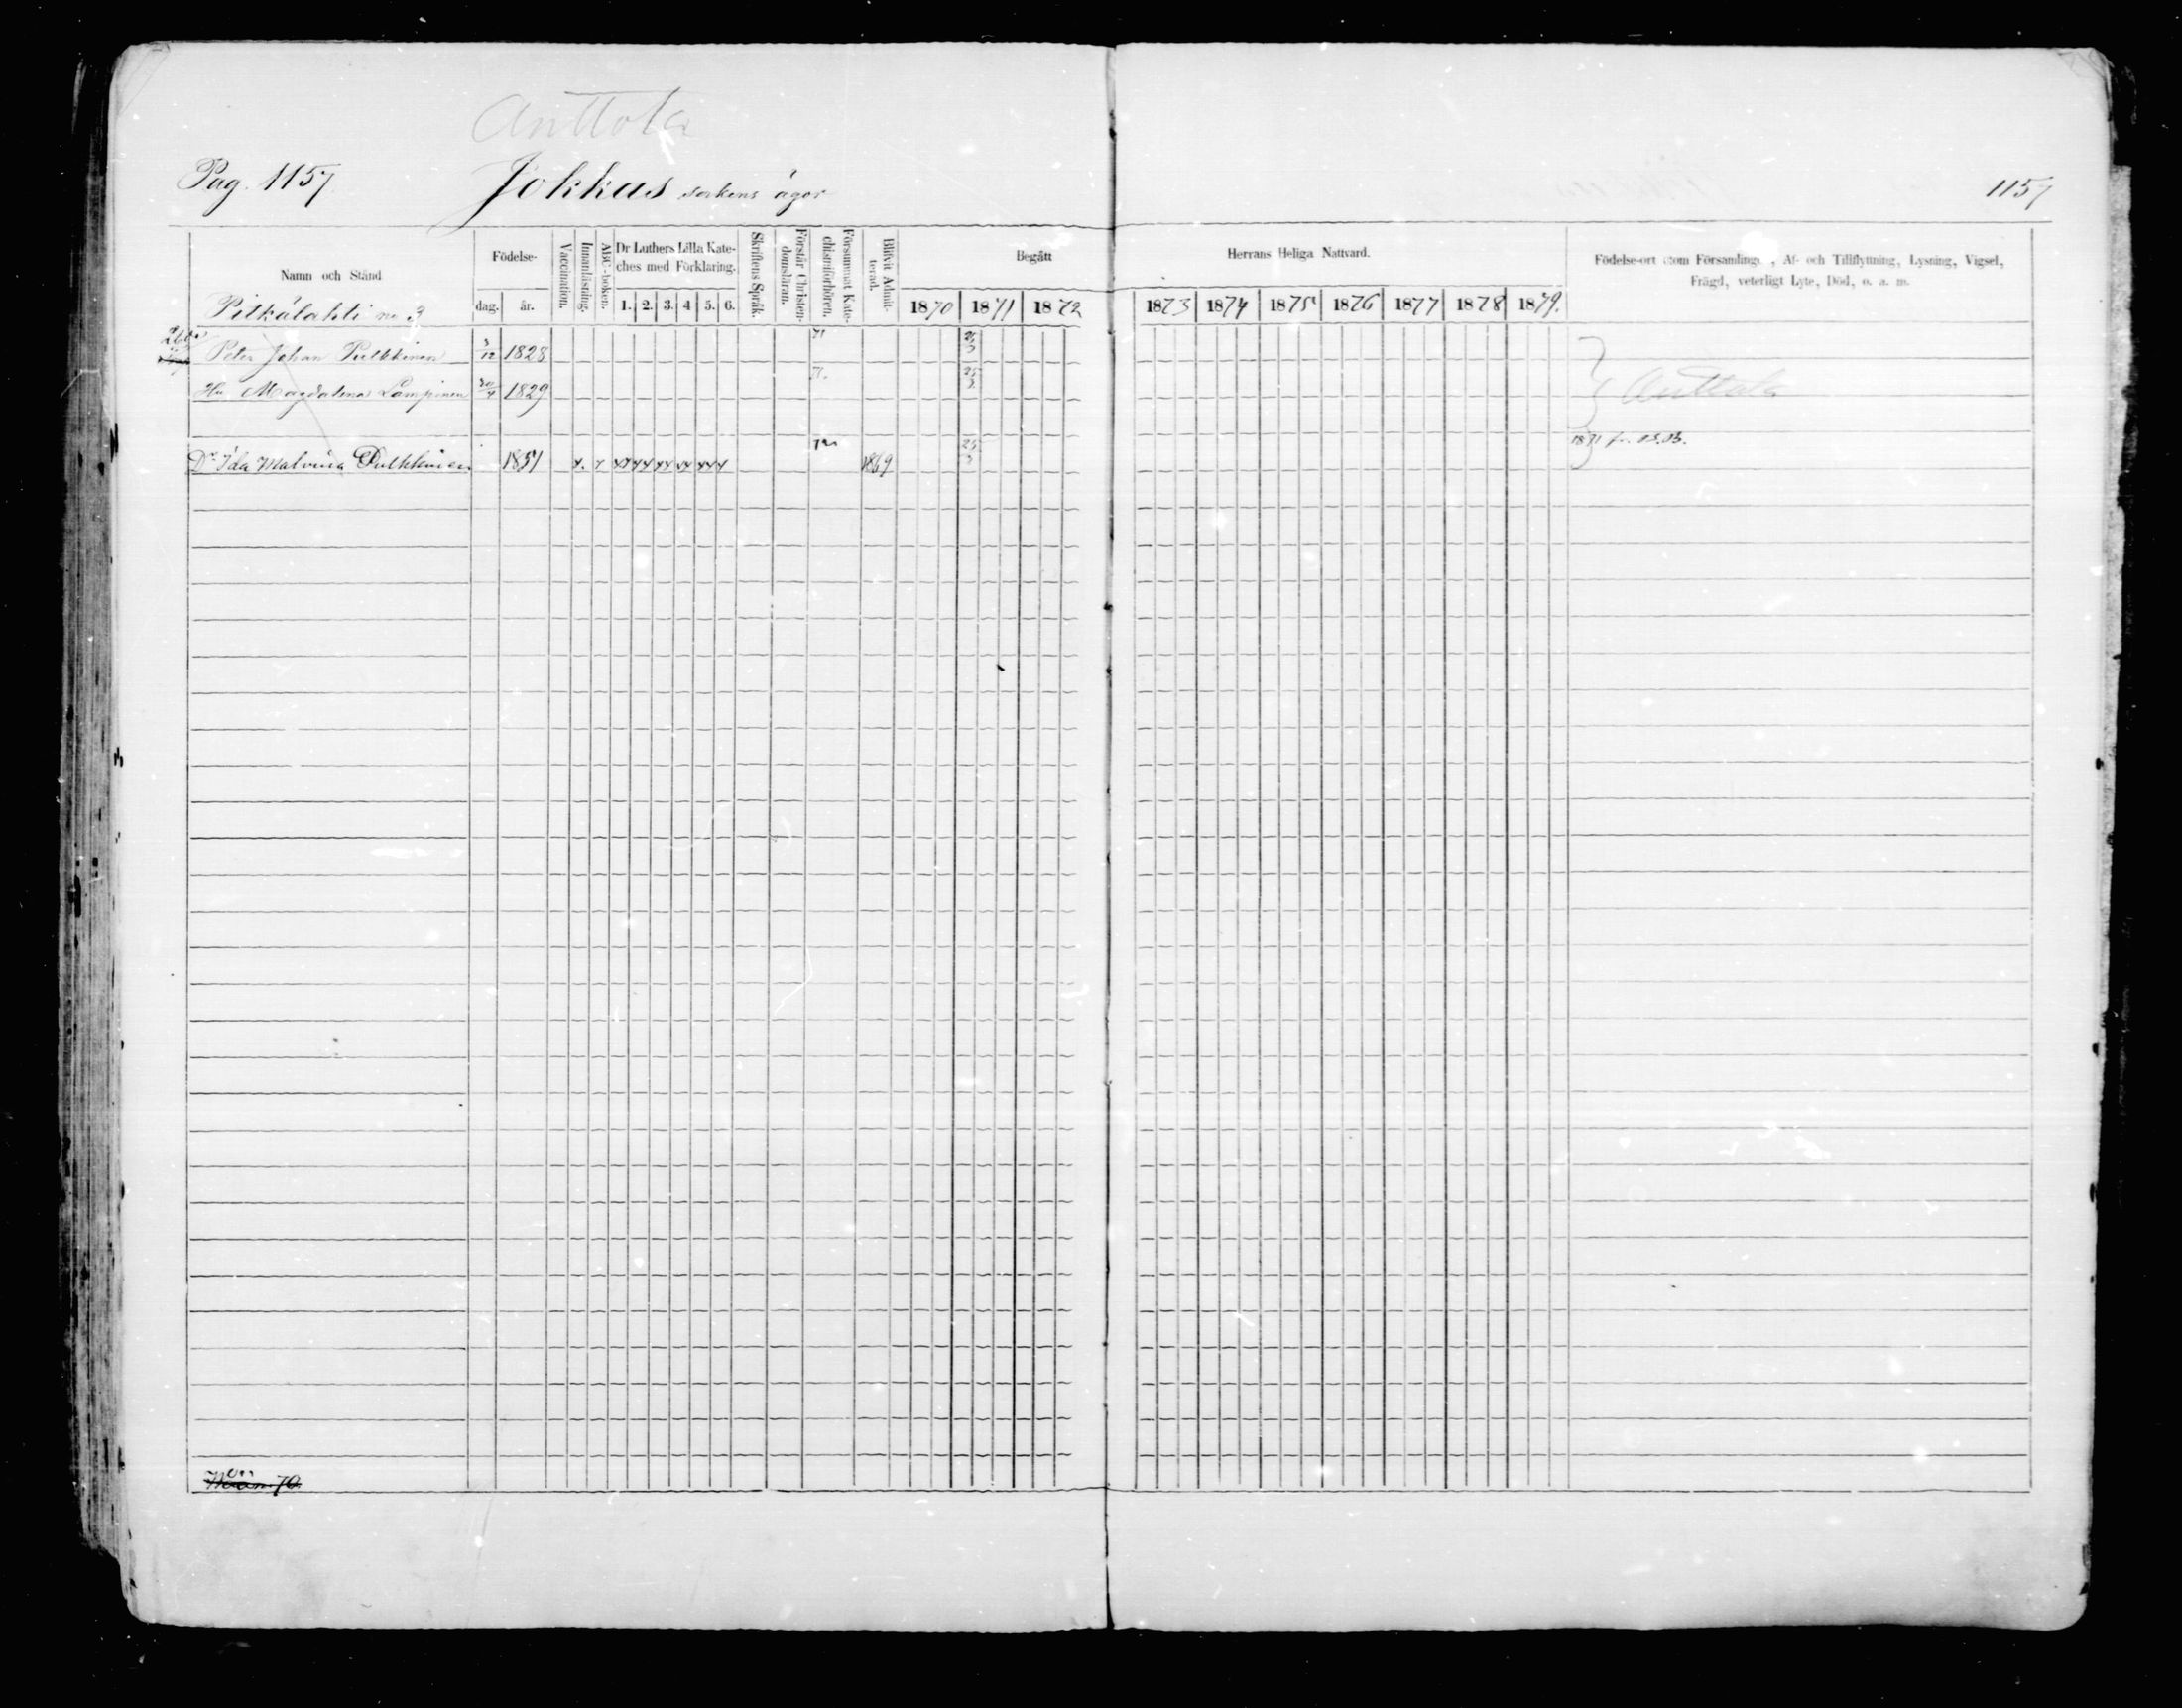 Anttola
Pag. 1157
Jokkas sockens ägor
1157
Namn och Stånd
Födelse-
dag. år.
Vaccination.
Innanläsning.
ABC-boken.
Dr Luthers Lilla Kate-
ches med Förklaring.
1. 2. 3. 4 5. 6.
Skriftens Språk.
Förstår Christen-
domsläran.
Försummat Kate-
chismiförhören.
Blifvit Admit-
terad.
Begått
Herrans Heliga Nattvard.
1870 1871 1872 1873 1874 1875 1876 1877 1878 1879.
Födelse-ort utom Församlinge , Af- och Tillflyttning, Lysning, Vigsel,
Frägd, veterligt Lyte, Död, o. a. m.
Pitkälahti no 3
Peter Johan Pulkkinen 3/12 1828 71
Hu Magdalena Lampinen 30/4 1829 71. 25/3
Anttola
Dr Ida Malvina Pulkkinen 1851 1869
1871